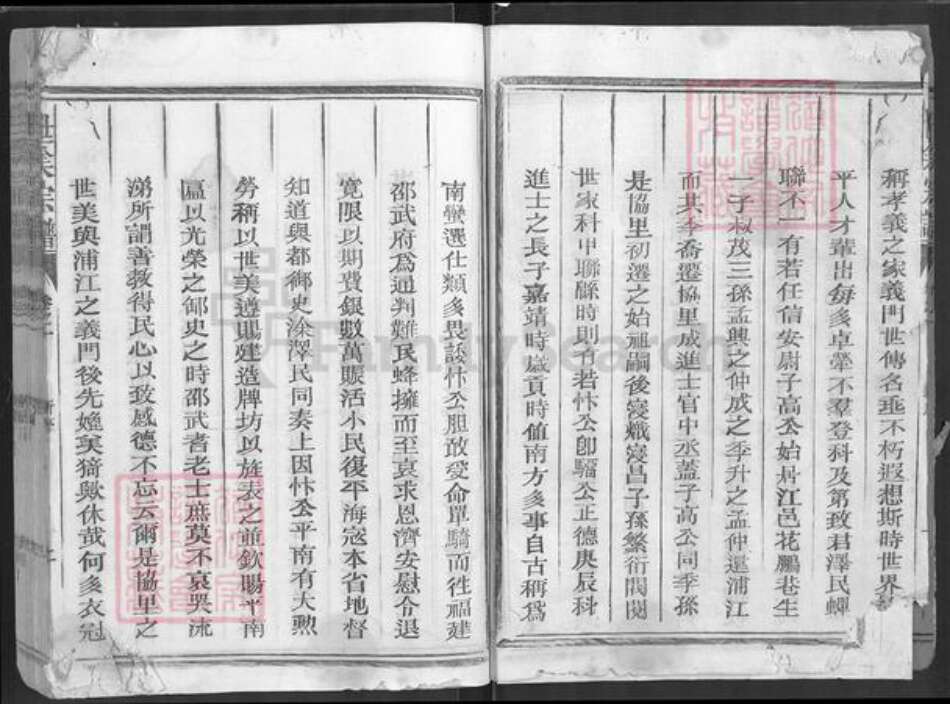 稱孝義之家義門世傳名垂不朽遐想斯時世界
平人才輩出每多卓犖不羣登科及第致君澤民蟬
聯不一有若任信安尉子高公始居江邑花鵬巷生
一子叔茂三孫孟興之仲威之季升之孟仲還浦江
而其季喬遷協里成進士官中丞蓋子高公同季孫
是協里初遷之始祖嗣後寖熾寖昌子孫繁衍閥閱
世家科甲聯緜時則有若忭公卽驑公正德庚辰科
進士之長子嘉靖時歲貢時值南方多事自古稱爲
南蠻選仕類多畏談忭公胆敢受命單騎而徃福建
邵武府爲通判難民蜂擁而至哀求恩濟安慰令退
寬限以期費銀數萬賑活小民復平海寇本省地督
知道與都御史涂澤民同奏上因忭公平南有大勲
勞稱以世美遵賜建造牌坊以旌表之並欽賜平南
區以光榮之御史之時邵武耆老士庶莫不哀哭流
涕所謂善教得民心以致感德不忘云爾是協里之
世美與浦江之義門後先媲美猗歟休哉何多衣冠
余宗譜
FamilySearch